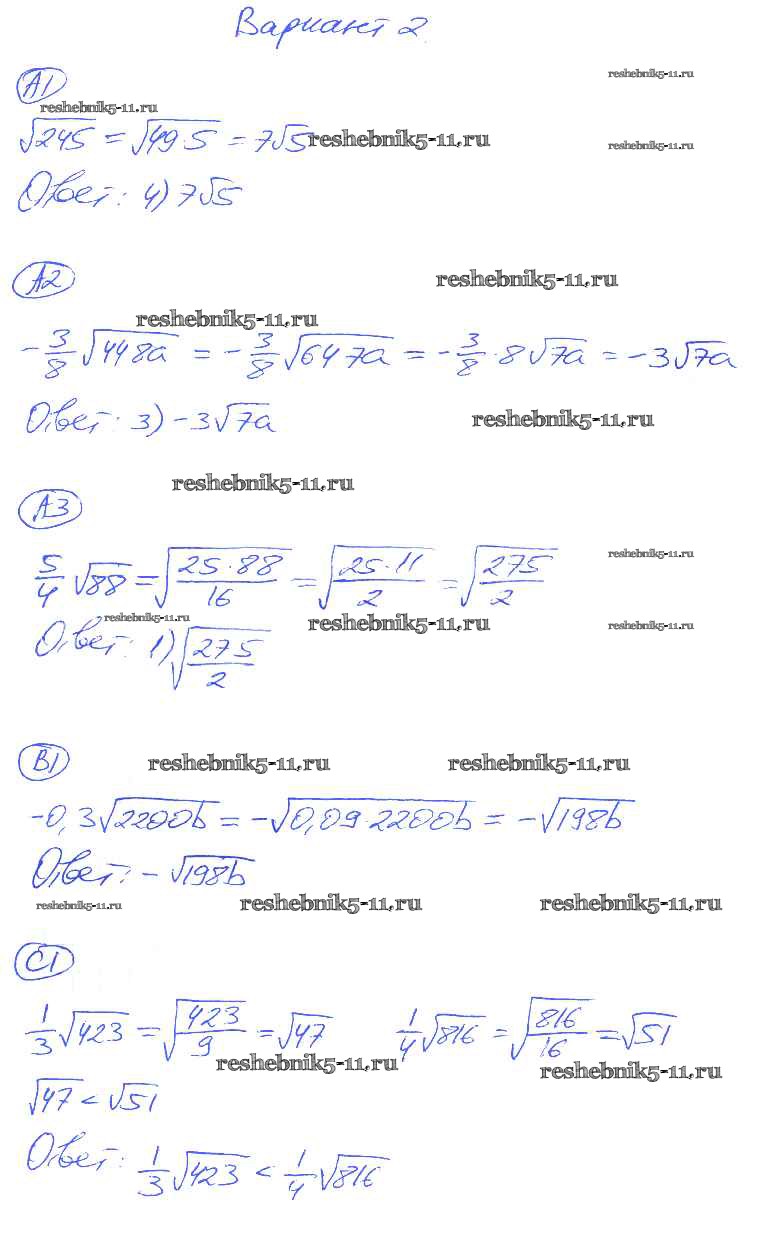 Вариант 2
А1
reshebnik5-11.ru
reshebnik5-11.ru
√245 = √49·5 = 7√5
reshebnik5-11.ru
reshebnik5-11.ru
Ответ: 4) 7√5
А2
reshebnik5-11.ru
reshebnik5-11.ru
-3/8 √448a = -3/8 √64·7a = -3/8 · 8√7a = -3√7a
Ответ: 3) -3√7a
reshebnik5-11.ru
reshebnik5-11.ru
А3
5/4 √88 = √(25·88/16) = √(25·11/2) = √(275/2)
reshebnik5-11.ru
reshebnik5-11.ru
reshebnik5-11.ru
reshebnik5-11.ru
Ответ: 1) √(275/2)
В1
reshebnik5-11.ru
reshebnik5-11.ru
-0,3√2200b = -√0,09·2200b = -√198b
Ответ: -√198b
reshebnik5-11.ru
reshebnik5-11.ru
reshebnik5-11.ru
С1
1/3 √423 = √(423/9) = √47 1/4 √816 = √(816/16) = √51
reshebnik5-11.ru
reshebnik5-11.ru
√47 < √51
Ответ: 1/3 √423 < 1/4 √816